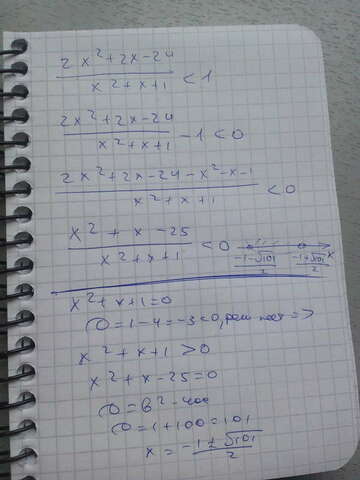 (2x²+2x-24)/(x²+x+1) < 1
(2x²+2x-24)/(x²+x+1) - 1 < 0
(2x²+2x-24-x²-x-1)/(x²+x+1) < 0
(x²+x-25)/(x²+x+1) < 0 (-1-√101)/2 (-1+√101)/2 x
x²+x+1=0
D=1-4=-3<0, реш нет =>
x²+x+1>0
x²+x-25=0
D=b²-4ac
D=1+100=101
x=(-1±√101)/2